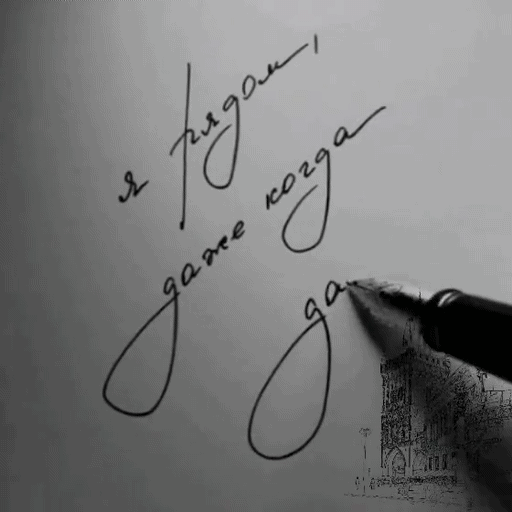 я рядом,
даже когда
да